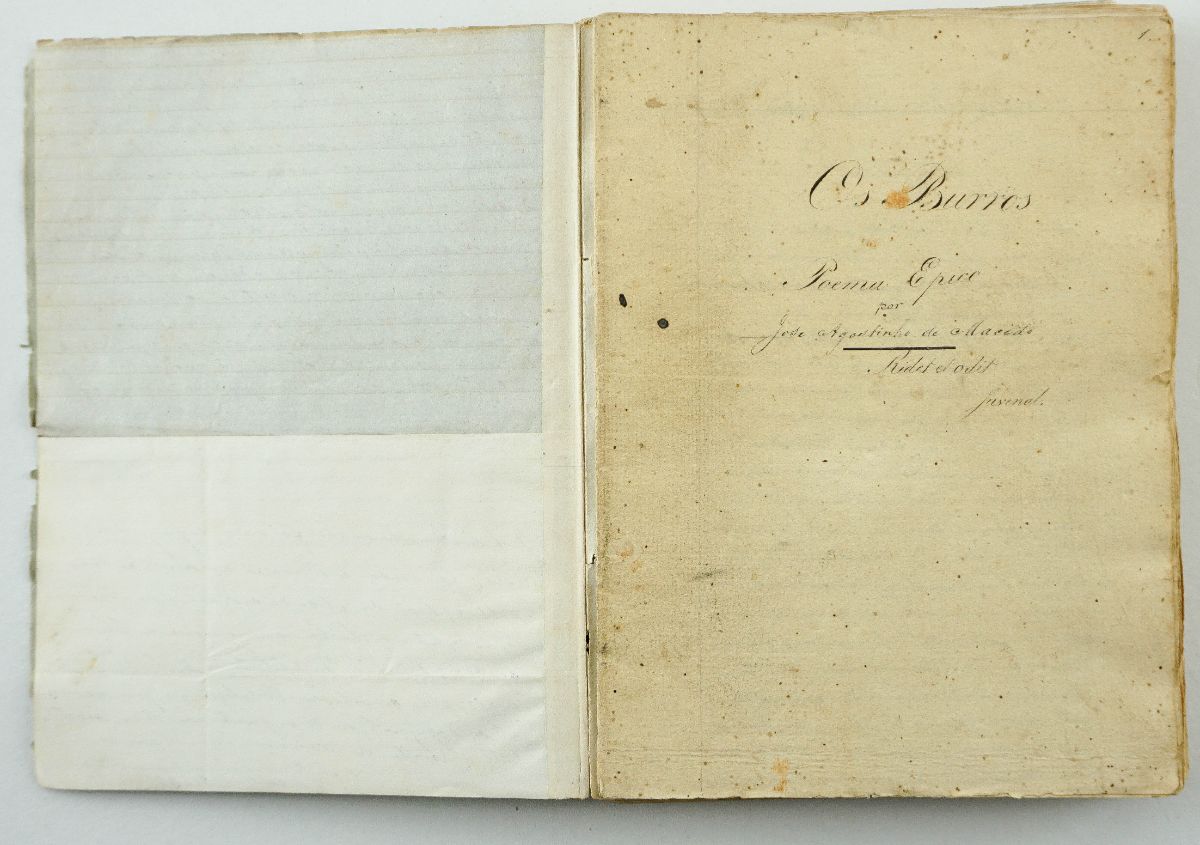 1
Os Burros
Poema Epico
por
Jose Agostinho de Macedo
Ridet et odit
juvenal.